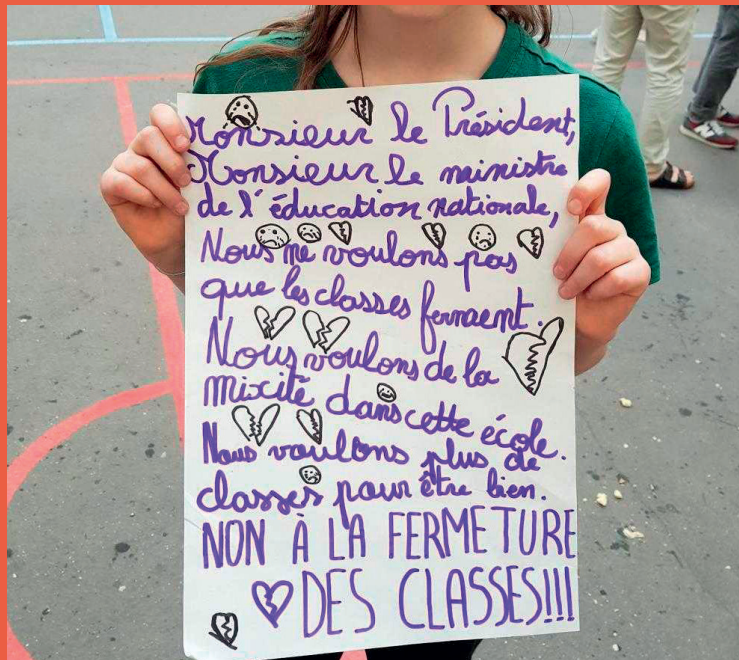 Monsieur le Président,
Monsieur le ministre
de l'éducation nationale,
Nous ne voulons pas
que les classes ferment.
Nous voulons de la
mixité dans cette école.
Nous voulons plus de
classes pour être bien.
NON À LA FERMETURE
DES CLASSES!!!